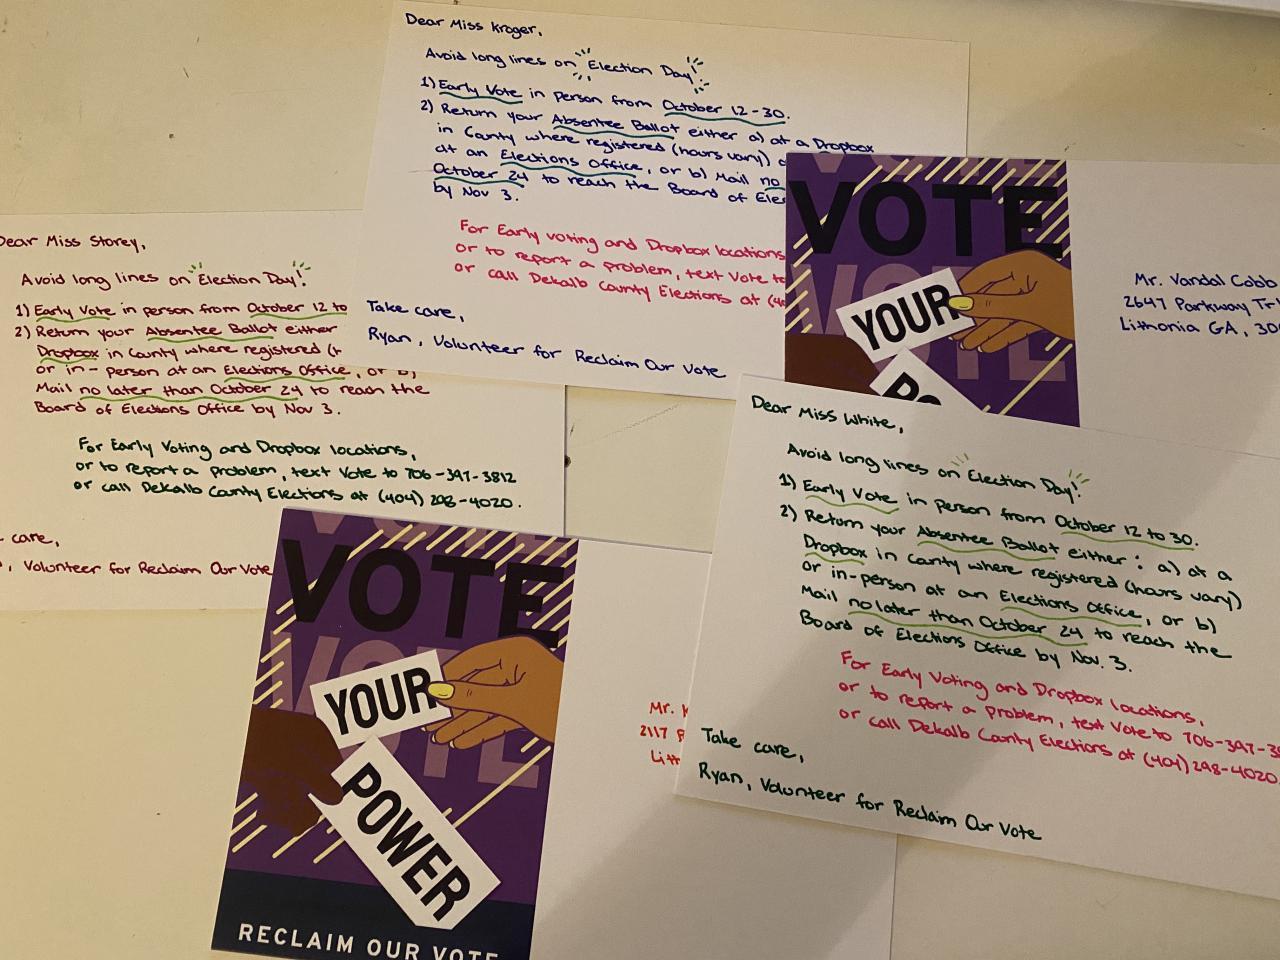 Dear Miss Kroger,
Avoid long lines on Election Day!
1) Early Vote in person from October 12-30.
2) Return your Absentee Ballot either a) at a Dropbox
in County where registered (hours vary)
at an Elections Office, or b) Mail no
October 24 to reach the Board of
by Nov 3.
For Early voting and Dropbox locations
or to report a problem, text Vote to
or call Dekalb County Elections at
Take care,
Ryan, Volunteer for Reclaim Our Vote
Dear Miss Storey,
Avoid long lines on Election Day!
1) Early Vote in person from October 12 to
2) Return your Absentee Ballot either
Dropbox in County where registered
or in-person at an Elections Office, or b)
Mail no later than October 24 to reach the
Board of Elections Office by Nov 3.
For Early Voting and Dropbox locations,
or to report a problem, text Vote to 706-397-3812
or call Dekalb County Elections at (404) 298-4020.
care,
, Volunteer for Reclaim Our Vote
VOTE
VOTE
YOUR
Mr. Vandal Cobb
2647 Parkway
Lithonia GA,
Dear Miss White,
Avoid long lines on Election Day!
1) Early Vote in person from October 12 to 30.
2) Return your Absentee Ballot either: a) at a
Dropbox in County where registered (hours vary)
or in-person at an Elections Office, or b)
Mail no later than October 24 to reach the
Board of Elections Office by Nov. 3.
For Early Voting and Dropbox locations,
or to report a problem, text Vote to 706-397-
or call Dekalb County Elections at (404) 298-4020.
Take care,
Ryan, Volunteer for Reclaim Our Vote
VOTE
VOTE
YOUR
POWER
RECLAIM OUR VOTE
Mr.
2117